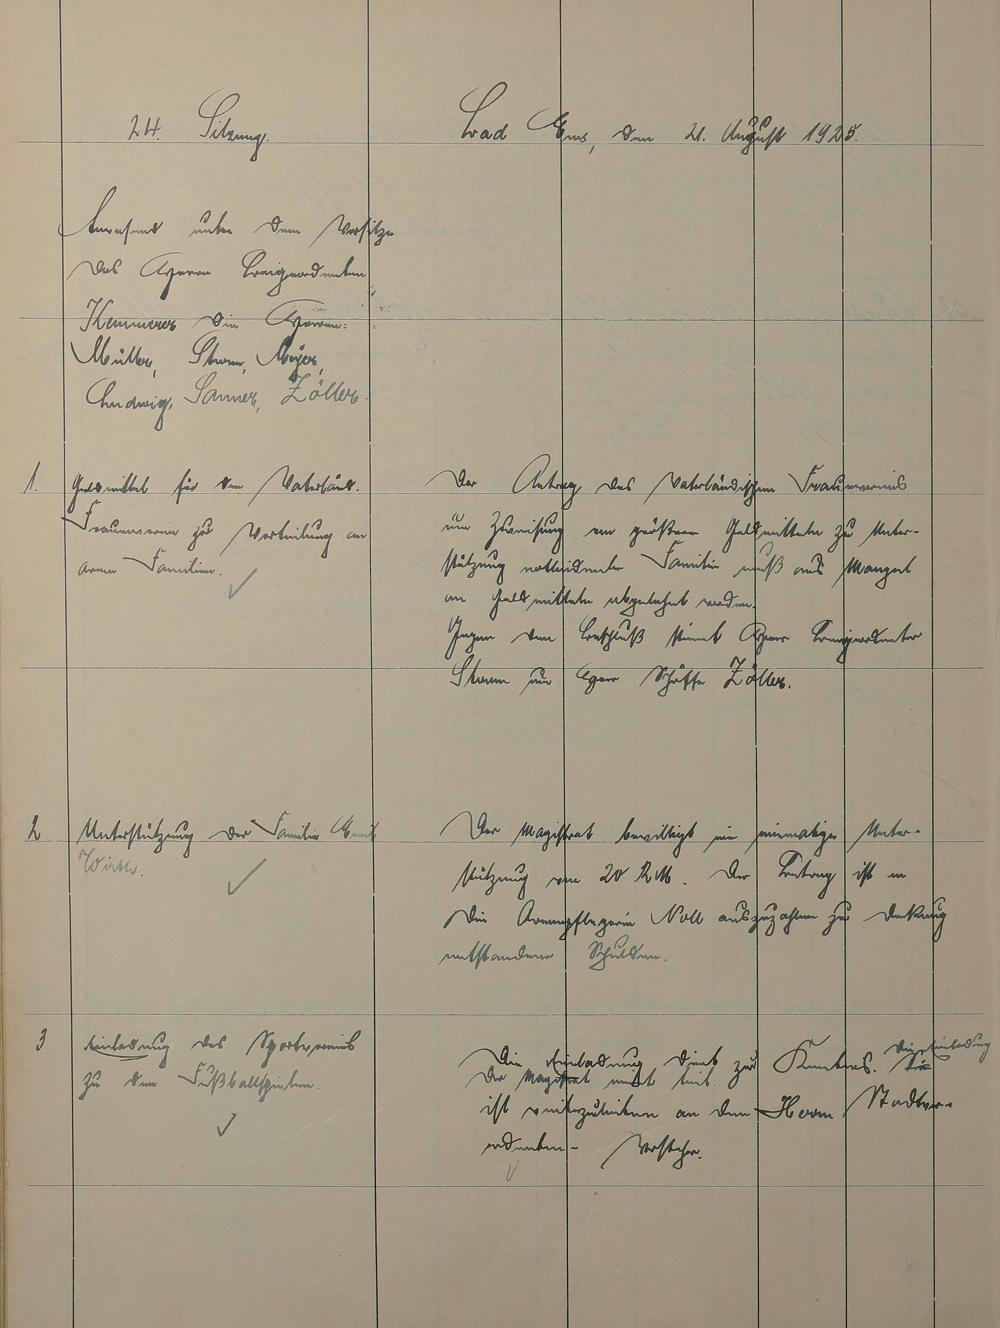 24. Sitzung.
Bad Ems, den 21. August 1925.
Anwesend unter dem Vorsitze
des Herrn Beigeordneten
Kemmerer die Herren:
Müller, Sturm, Meyer,
Ludwig, Sanner, Zöller.
1. Geldmittel für den Vaterländ.
Frauenverein zur Verteilung an
arme Familien.
Der Antrag des Vaterländischen Frauenvereins
um Zuweisung von größeren Geldmitteln zu Unter-
stützung notleidender Familien muß aus Mangel
an Geldmitteln abgelehnt werden.
Gegen den Beschluß stimmt Herr Beigeordneter
Sturm und Herr Schöffe Zöller.
2 Unterstützung der Familie Emil
Wirth.
Der Magistrat bewilligt eine einmalige Unter-
stützung von 20 RM. Der Betrag ist an
die Armenpflegerin Noll auszuzahlen zur Deckung
entstandener Schulden.
3 Einladung des Sportvereins
zu den Fußballspielen.
Die Einladung dient zur Kenntnis. Die Einladung
Der Magistrat nimmt teil.
ist weiterzuleiten an den Herrn Stadtver-
ordneten-Vorsteher.